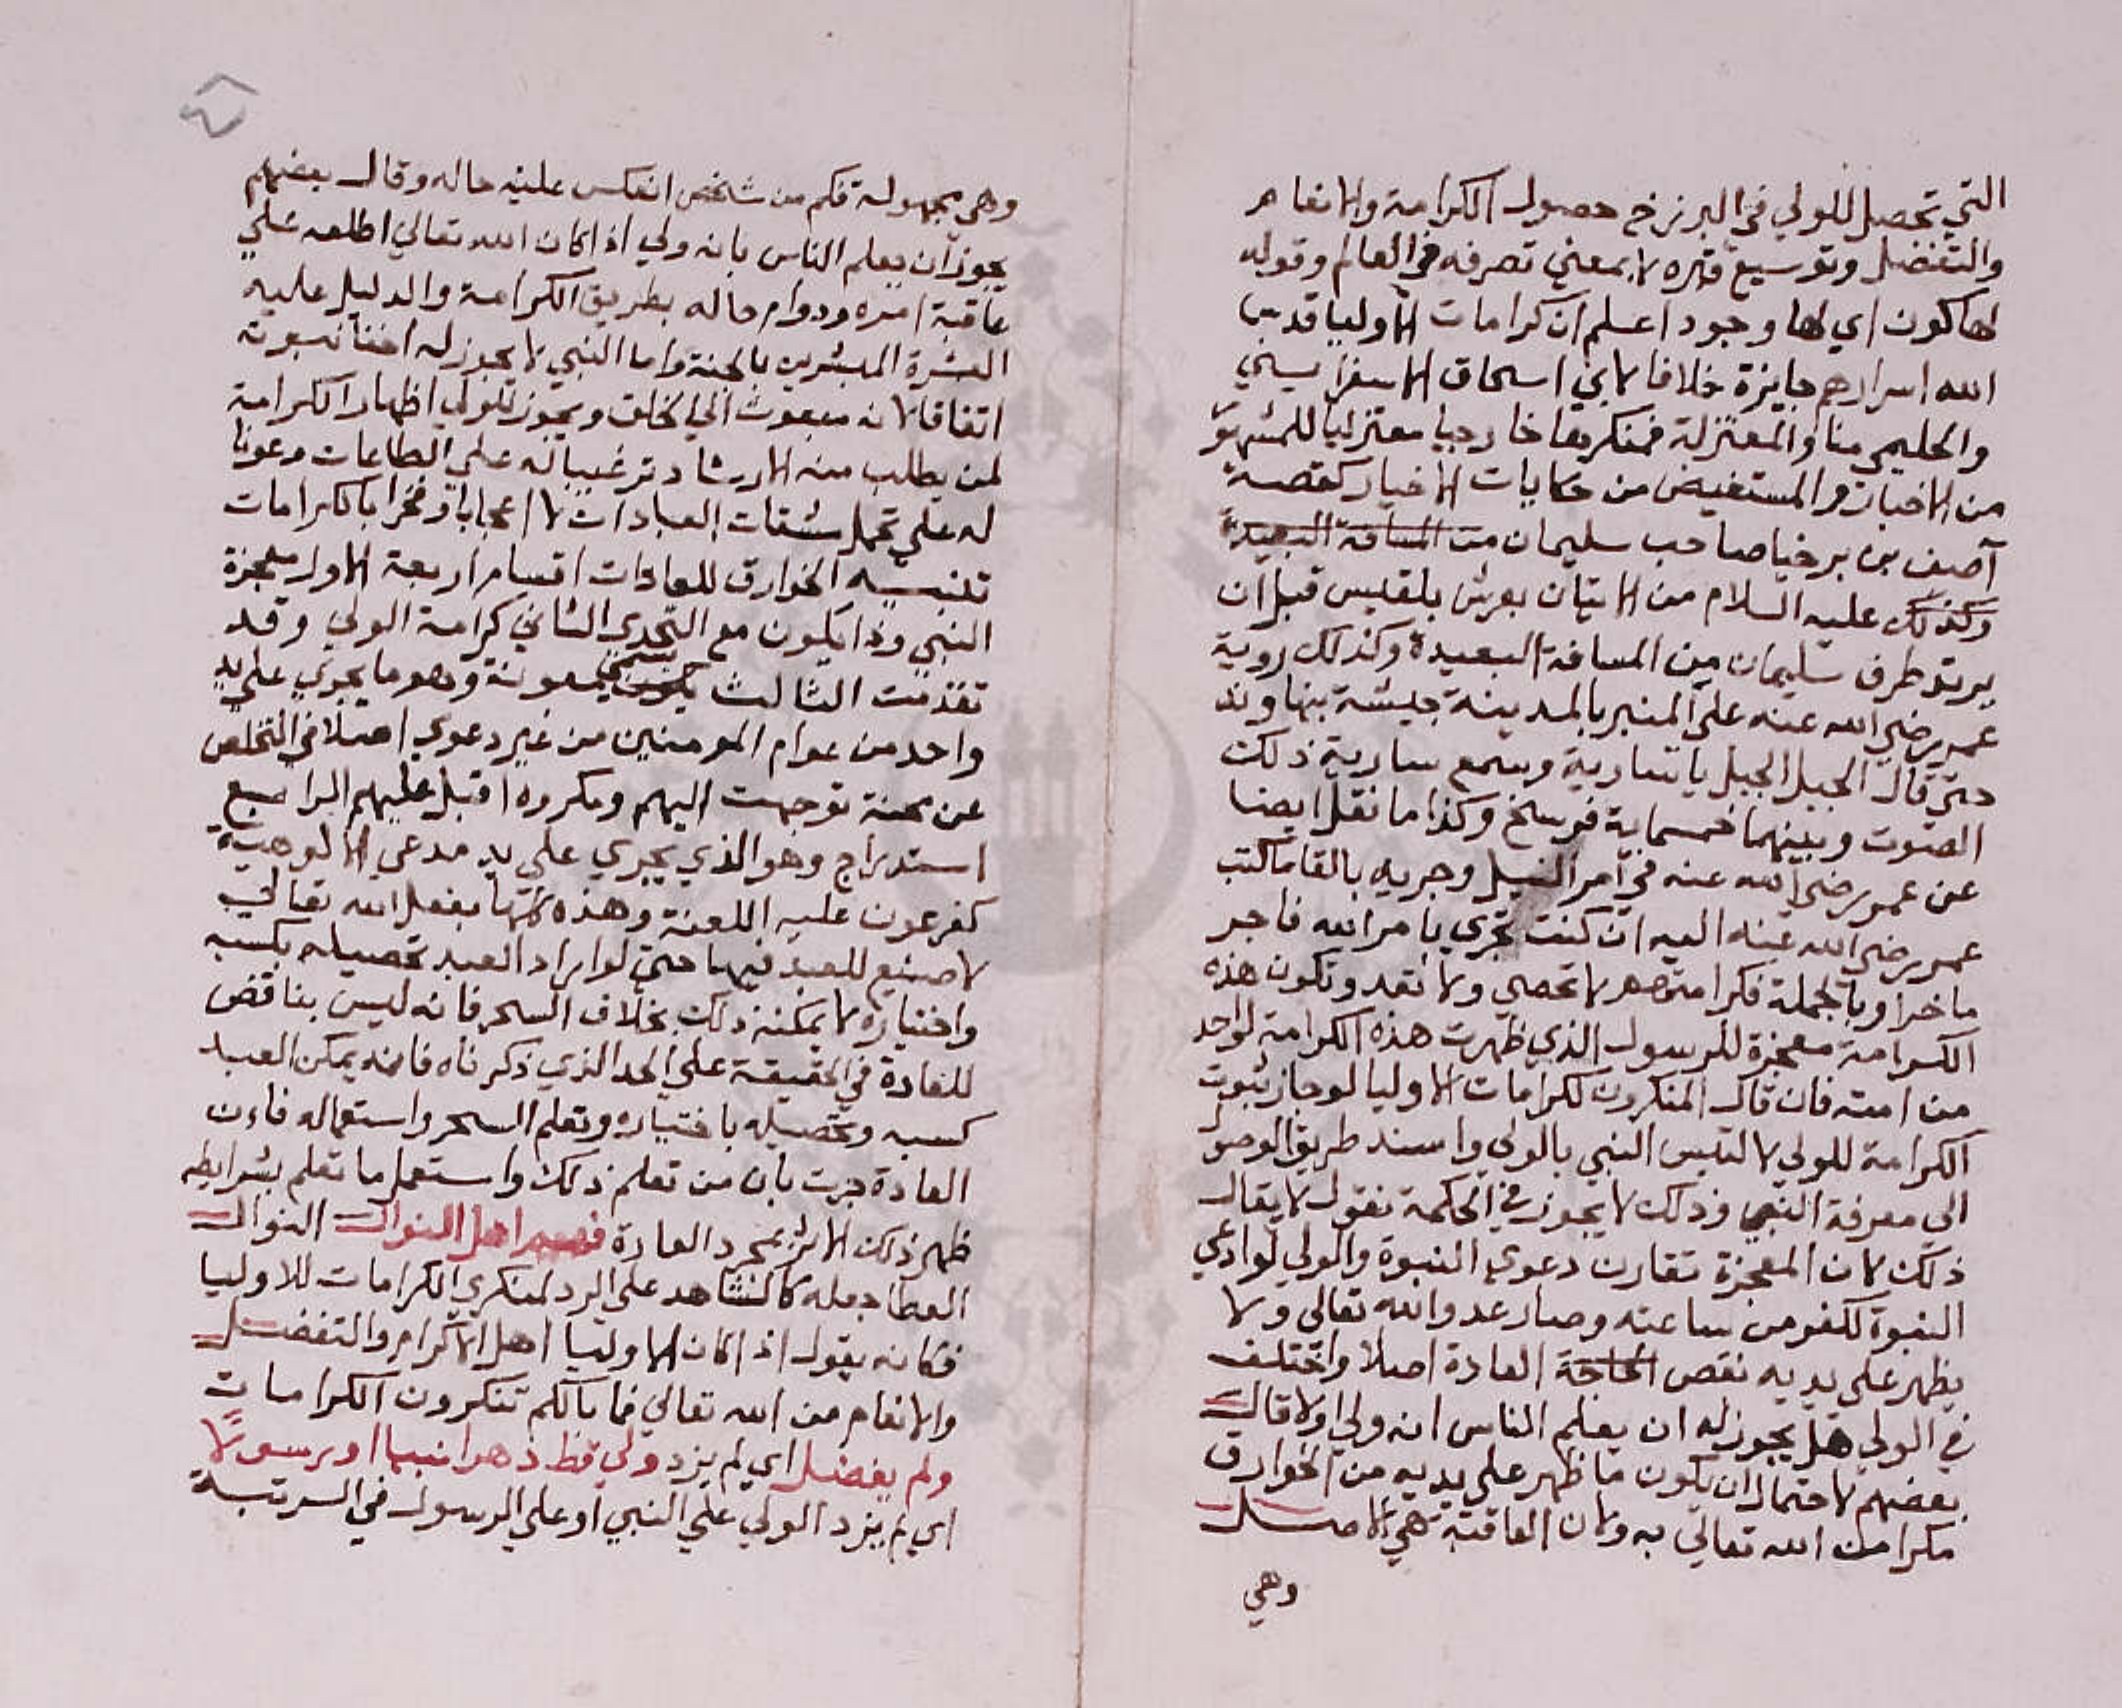 التي تحصل للولي في البرزخ حصول الكرامة والانعام
والتفضل وتوسيع قبره لا بمعني تصرفه في العالم وقوله
لها كون اي لها وجود اعلم ان كرامات الاوليا قدس
الله اسرارهم جايزة خلافا لابي اسحاق الاسفرايسيني
والحليمي منا والمعتزلة فمنكريها خارجيا معتزليا للمشهور
من الاخبار والمستفيض من حكايات الاخيار كقصة
آصف بن برخيا صاحب سليمان من المسافة البعيدة
وكذلك عليه السلام من الاتيان بعرش بلقيس قبل ان
يرتد طرف سليمان من المسافة البعيدة وكذلك روية
عمر رضي الله عنه علي المنبر بالمدينة جيشه بنهاوند
حتي قال الجبل الجبل يا سارية وسمع سارية ذلك
الصوت وبينهما خمسماية فرسخ وكذا ما نقل ايضا
عن عمر رضي الله عنه في امر النيل وجريه بالقا ما كتب
عمر رضي الله عنه اليه ان كنت تجري بامر الله فاجر
ماخرا وبالجملة فكرامتهم لا تحصي ولا تعد وتكون هذه
الكرامة معجزة للرسول الذي ظهرت هذه الكرامة لواحد
من امته فان قال المنكرون لكرامات الاوليا لو جاز ثبوت
الكرامة للولي لالتبس النبي بالولي وانسد طريق الوصول
الي معرفة النبي وذلك لا يجوز في الحكمة نقول لا يقال
ذلك لان المعجزة تقارن دعوي النبوة والولي لو ادعي
النبوة لكفر من ساعته وصار عدو الله تعالي ولا
يظهر علي يديه نقص الحاجة العادة اصلا واختلف
في الولي هل يجوز له ان يعلم الناس انه ولي اولا قال
بعضهم لاحتمال ان يكون ما ظهر علي يديه من الخوارق
مكرا من الله تعالي به ولان العاقبة هي الاصل
وهي
وهي مجهولة فكم من شخص انعكس عليه حاله وقال بعضهم
يجوز ان يعلم الناس بانه ولي اذا كان الله تعالي اطلعه علي
عاقبة امره ودوام حاله بطريق الكرامة والدليل عليه
العشرة المبشرين بالجنة واما النبي لا يجوز له اخفا نبوته
اتفاقا لانه مبعوث الي الخلق ويجوز للولي اظهار الكرامة
لمن يطلب منه الارشاد ترغيبا له علي الطاعات وعونا
له علي تحمل مشقات العبادات لا اعجابا وفخرا بالكرامات
تنبيه الخوارق للعادات اقسام اربعة الاول معجزة
النبي وذا يكون مع التحدي الثاني كرامة الولي وقد
تقدمت الثالث يسمي معونة وهو ما يجري علي يد
واحد من عوام المومنين من غير دعوي اصلا في التخلص
عن محنة توجهت اليهم ومكروه اقبل عليهم الرابع
استدراج وهو الذي يجري علي يد مدعي الالوهية
كفرعون عليه اللعنة وهذه كلها بفعل الله تعالي
لا صنع للعبد فيها حتي لو اراد العبد تحصيله بكسبه
واختياره لا يمكنه ذلك بخلاف السحر فانه ليس بناقض
للعادة في الحقيقة علي الحد الذي ذكرناه فانه يمكن العبد
كسبه وتحصيله باختياره وتعلم السحر واستعماله فان
العادة جرت بان من تعلم ذلك واستعمل ما تعلم بشرايطه
ظهر ذلك الاثر بمجرد العادة فهم اهل النوال النوال
العطا جعله كالشاهد علي الرد لمنكري الكرامات للاوليا
فكانه يقول اذا كان الاوليا اهل الاكرام والتفضل
والانعام من الله تعالي فما بالكم تنكرون الكرامات
ولم يفضل اي لم يزد ولي قط دهرا نبيا او رسولا
اي لم يزد الولي علي النبي او علي الرسول في المرتبة